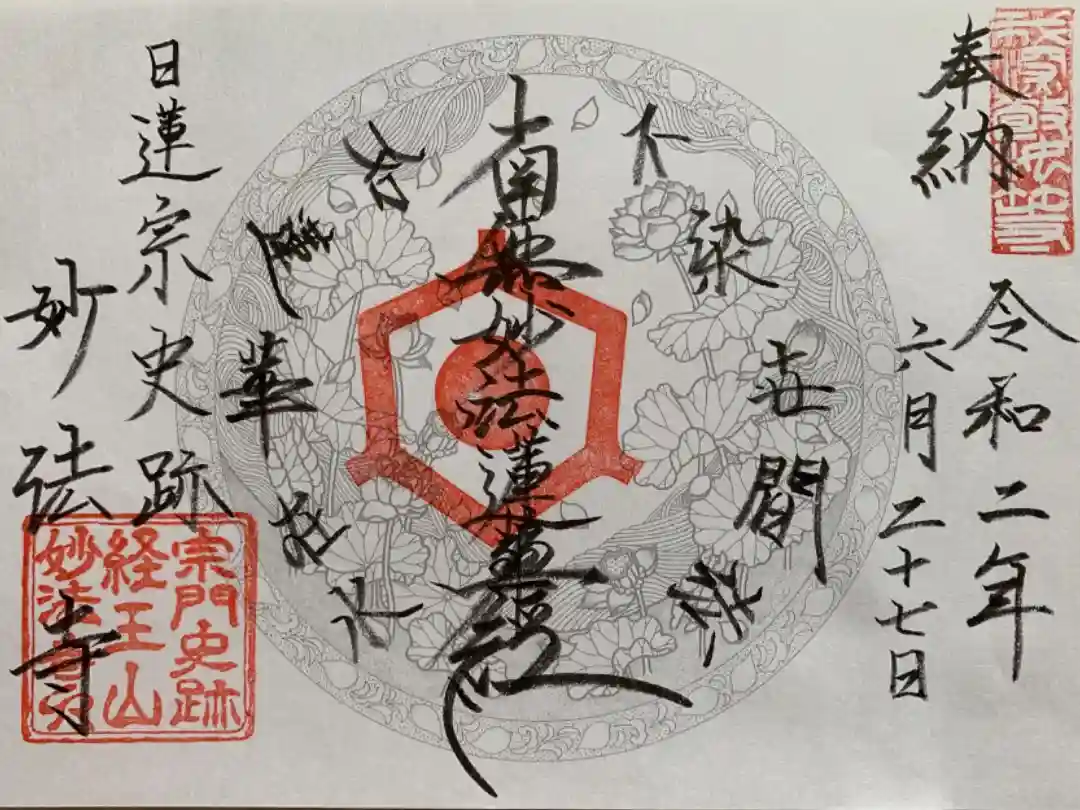 我深敬汝等
奉納
令和二年
六月二十七日
不染世間法
南無妙法蓮華経
如蓮華在水
日蓮宗史跡
妙法寺
宗門史跡
経王山
妙法寺